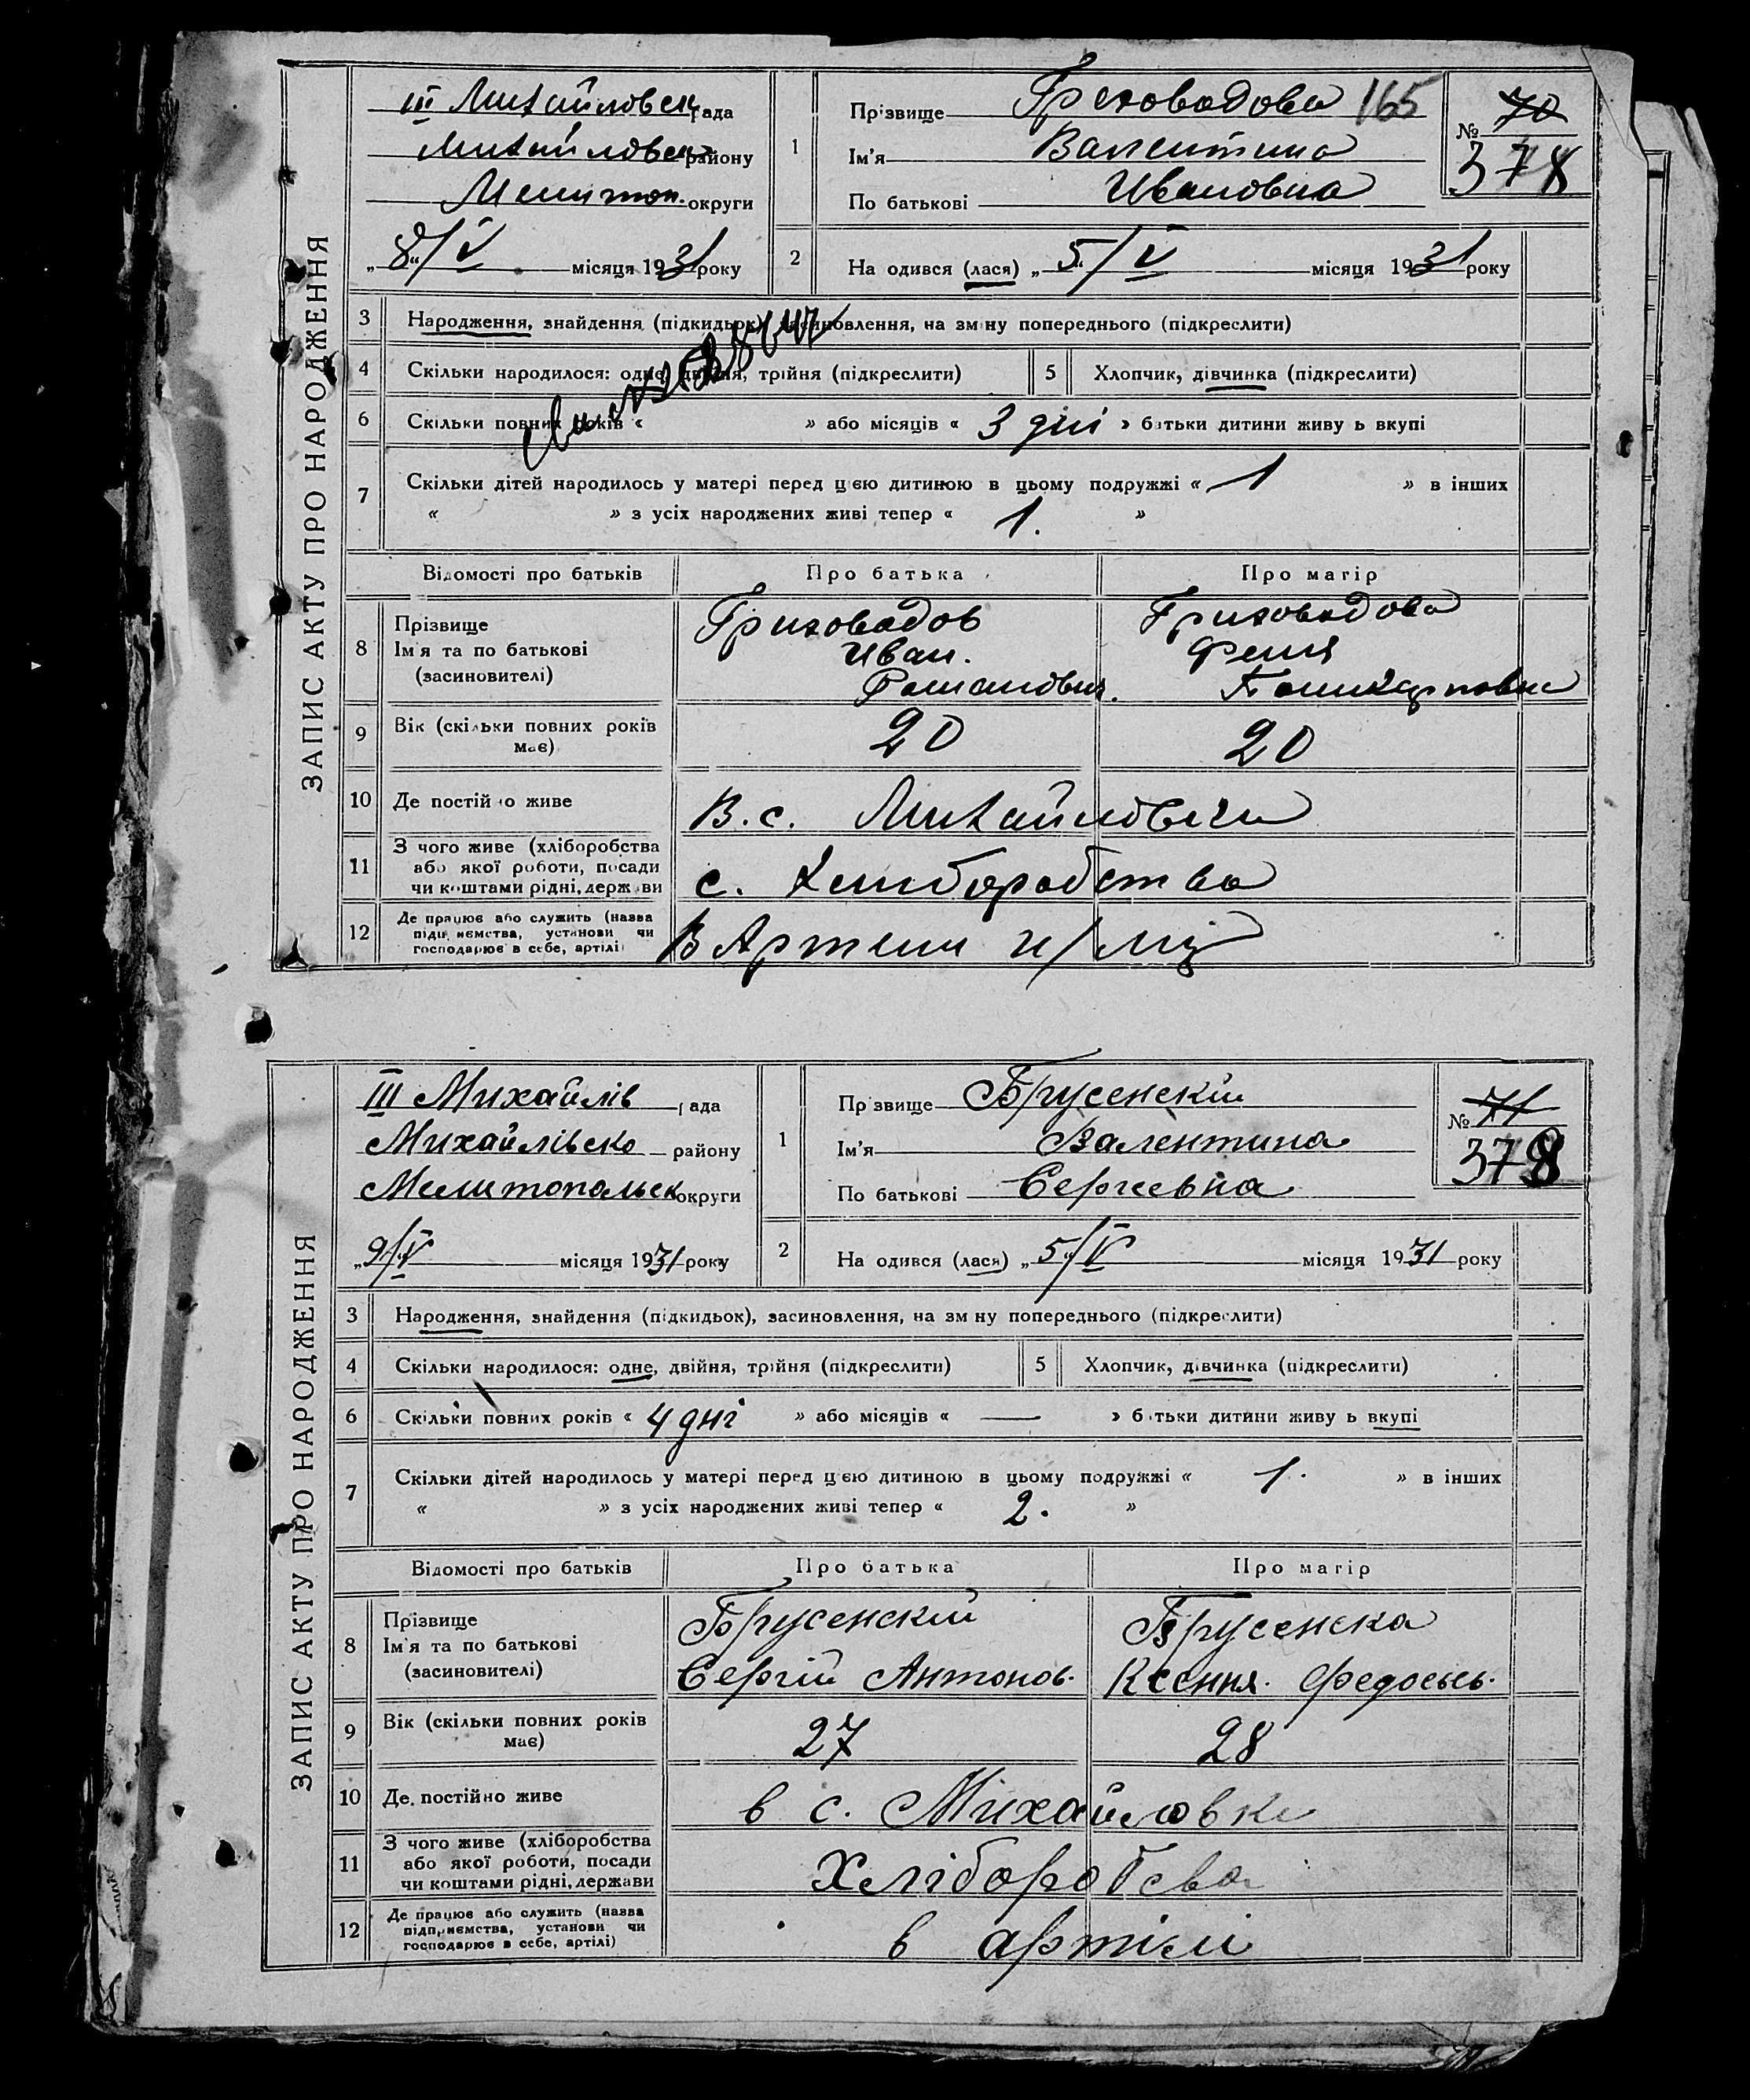 ЗАПИС АКТУ ПРО НАРОДЖЕННЯ
III Михайловськ рада
Михайловськ району
Мелитоп. округи
„8“/V місяця 1931 року
1
Прізвище Гриховодова 165
Ім'я Валентина
По батькові Ивановна
№ 70
378
2
На одився (лася) „5“/V місяця 1931 року
3 Народження, знайдення (підкидьок), засиновлення, на зміну попереднього (підкреслити)
4 Скільки народилося: одне, двійня, трійня (підкреслити) 5 Хлопчик, дівчинка (підкреслити)
6 Скільки повних років « » або місяців « 3 дні » батьки дитини живу ь вкупі
7 Скільки дітей народилось у матері перед цією дитиною в цьому подружжі « 1 » в інших
« » з усіх народжених живі тепер « 1. »
Відомості про батьків Про батька Про матір
8 Прізвище
Ім'я та по батькові
(засновителі)
Гриховодов
Иван.
Романович.
Гриховодова
Феня
Поликарповна
9 Вік (скільки повних років має) 20 20
10 Де постійно живе В. с. Михайловки
11 З чого живе (хліборобства
або якої роботи, посади
чи коштами рідні, держави
с. Хлиборобства
12 Де працює або служить (назва
підприємства, установи чи
господарює в себе, артілі)
В Артели
ЗАПИС АКТУ ПРО НАРОДЖЕННЯ
III Михайлів рада
Михайлівско району
Мелитопольск округи
„9“/V місяця 1931 року
1
Прізвище Брусенскій
Ім'я Валентина
По батькові Сергеевна
№ 71
378
2
На одився (лася) „5“/V місяця 1931 року
3 Народження, знайдення (підкидьок), засиновлення, на зм ну попереднього (підкреслити)
4 Скільки народилося: одне, двійня, трійня (підкреслити) 5 Хлопчик, дівчинка (підкреслити)
6 Скільки повних років « 4 дні » або місяців « — » батьки дитини живу ь вкупі
7 Скільки дітей народилось у матері перед цією дитиною в цьому подружжі « 1. » в інших
« » з усіх народжених живі тепер « 2. »
Відомості про батьків Про батька Про матір
8 Прізвище
Ім'я та по батькові
(засиновителі)
Брусенскій
Сергій Антонов.
Брусенска
Ксення. Федосьев.
9 Вік (скільки повних років має) 27 28
10 Де постійно живе в с. Михайловке
11 З чого живе (хліборобства
або якої роботи, посади
чи коштами рідні, держави
Хліборобсва
12 Де працює або служить (назва
підприємства, установи чи
господарює в себе, артілі)
в артілі